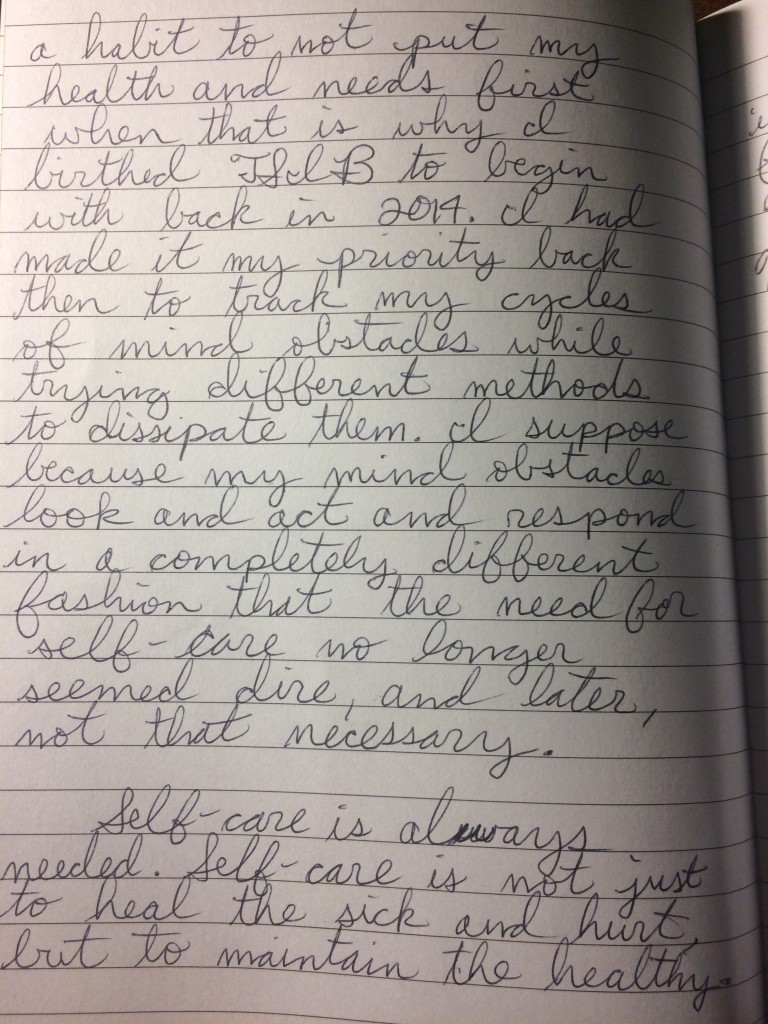 a habit to not put my
health and needs first
when that is why I
birthed to begin
with back in 2014. I had
made it my priority back
then to track my cycles
of mind obstacles while
trying different methods
to dissipate them. I suppose
because my mind obstacles
look and act and respond
in a completely different
fashion that the need for
self-care no longer
seemed dire, and later,
not that necessary.
Self-care is always
needed. Self-care is not just
to heal the sick and hurt,
but to maintain the healthy.